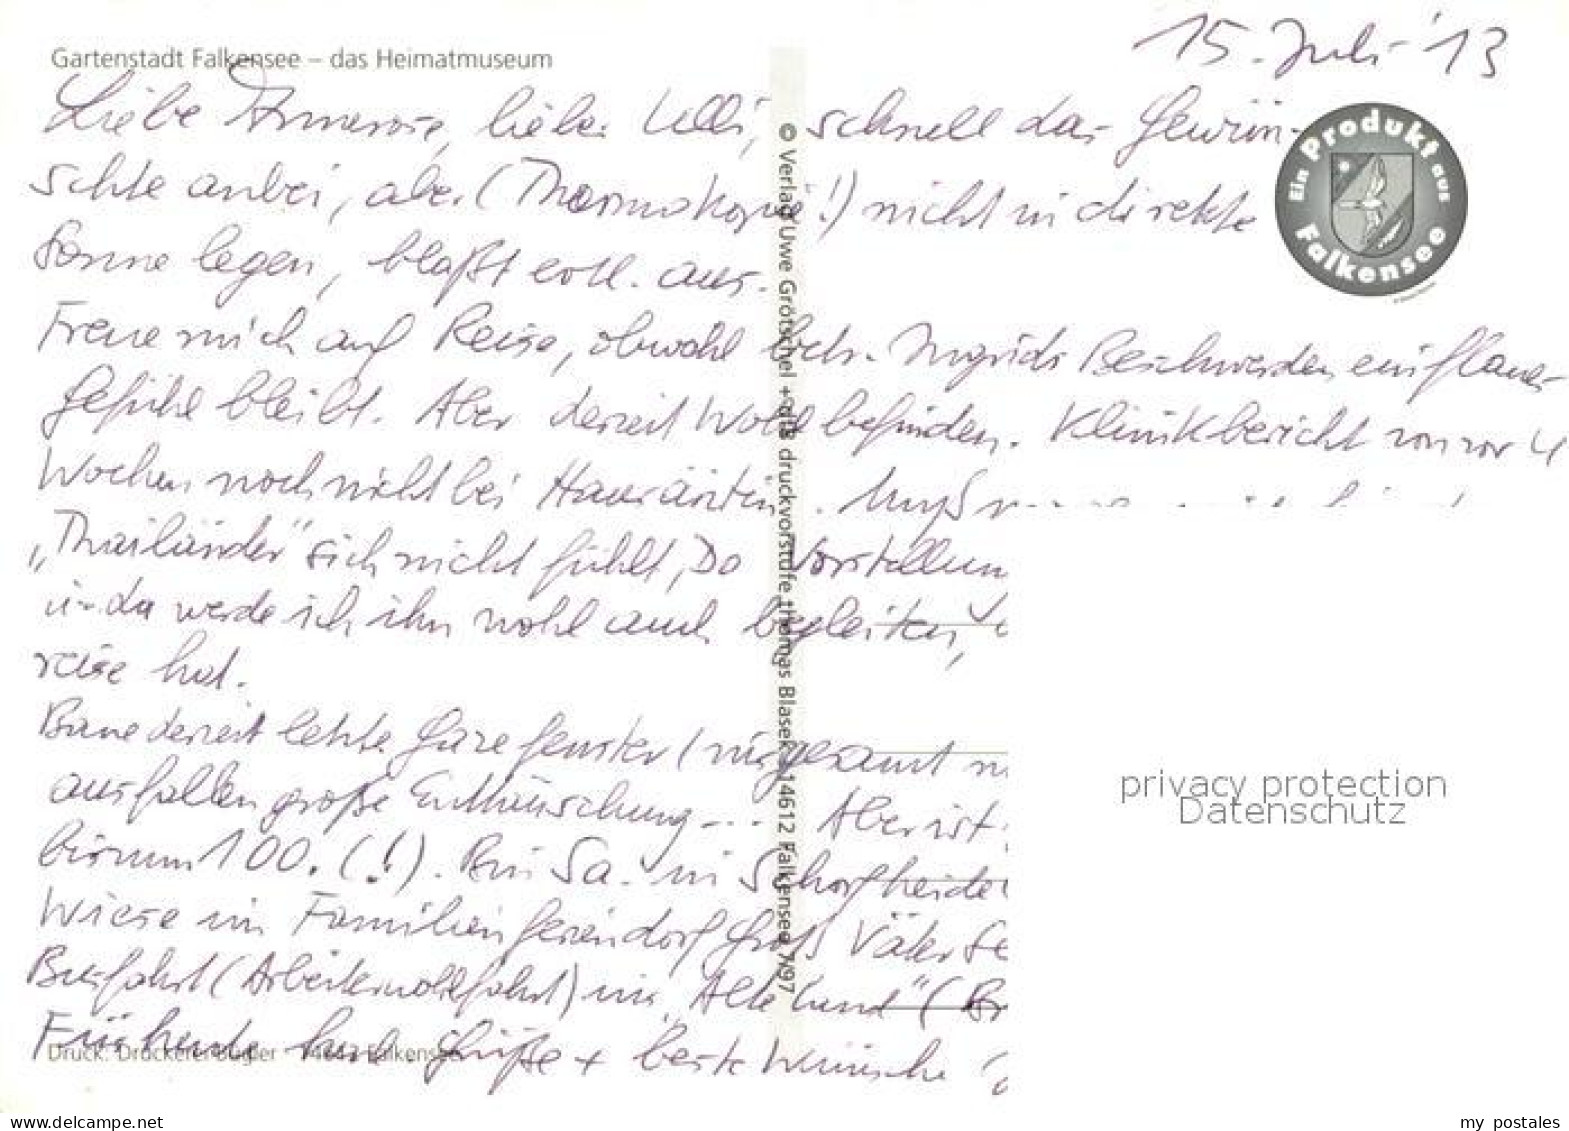 Gartenstadt Falkensee – das Heimatmuseum
15. Juli '13
Liebe Annerose, lieber Ulli, schnell das Gewün-
schte anbei, aber (Thermokopie!) nicht in direkte
Sonne legen, blaßt evtl. aus.
Freue mich auf Reise, obwohl Ingrids Beschwerden ein flaues
Gefühl bleibt. Aber derzeit Wohlbefinden. Klinikbericht von vor 4
Wochen noch nicht bei Hausärztin. Muß
„Thailänder" sich nicht fühlt, Do Vorstellun
u. da werde ich ihn wohl auch begleiten,
reise hat.
Baue derzeit letzte Gazefenster (insgesamt
ausfallen große Enttäuschung... Aber ist
bis zum 100. (!). Bin Sa. in Schorfheide
Wiese im Familienferiendorf Groß Väter Se
Busfahrt (Arbeiterwohlfahrt) ins „Alte Land" (Br
Grüße + beste Wünsche
© Verlag Uwe Grötschel + druckvorstufe thomas Blasek 14612 Falkensee 7/97
Ein Produkt aus Falkensee
Druck: Druckerei 14612 Falkensee
privacy protection
Datenschutz
www.delcampe.net
my_postales